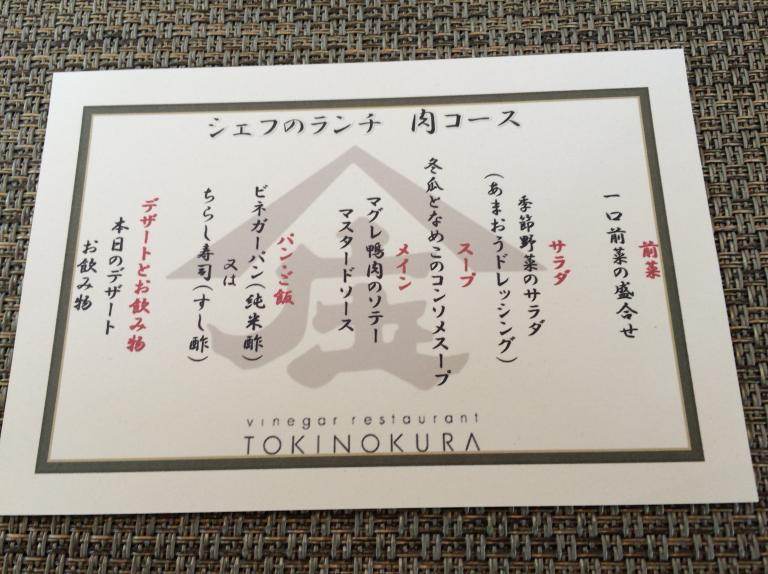 シェフのランチ　肉コース
前菜
一口前菜の盛合せ
サラダ
季節野菜のサラダ
（あまおうドレッシング）
スープ
冬瓜となめこのコンソメスープ
メイン
マグレ鴨肉のソテー
マスタードソース
パン・ご飯
ビネガーパン（純米酢）
又は
ちらし寿司（すし酢）
デザートとお飲み物
本日のデザート
お飲み物
vinegar restaurant
TOKINOKURA